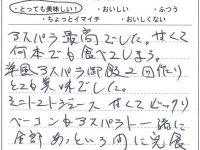 ・とっても美味しい！ ・おいしい ・ふつう
・ちょっとイマイチ ・おいしくない
アスパラ最高でした。甘くて
何本でも食べてしまう。
アスパラ御飯2回作り
とても美味でした。
ミニトマトジュース 甘くてビックリ
ベーコンもアスパラと一緒に
全部あっという間に完食